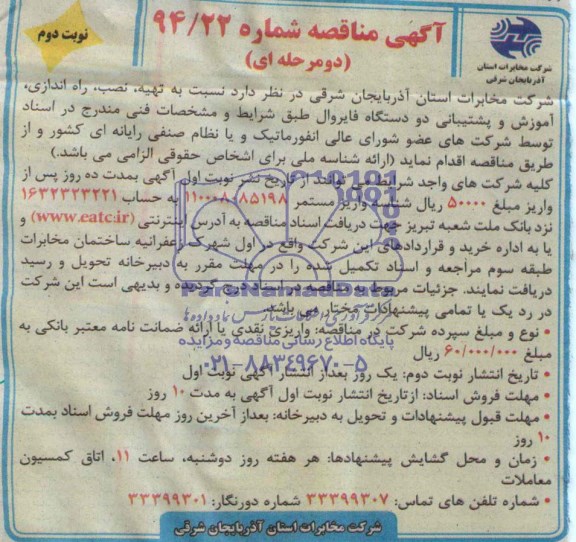 آگهی مناقصه شماره ۹۴/۲۲
(دومرحله ای)
نوبت دوم
شرکت مخابرات استان
آذربایجان شرقی
شرکت مخابرات استان آذربایجان شرقی در نظر دارد نسبت به تهیه، نصب، راه اندازی،
آموزش و پشتیبانی دو دستگاه فایروال طبق شرایط و مشخصات فنی مندرج در اسناد
توسط شرکت های عضو شورای عالی انفورماتیک و یا نظام صنفی رایانه ای کشور و از
طریق مناقصه اقدام نماید (ارائه شناسه ملی برای اشخاص حقوقی الزامی می باشد.)
کلیه شرکت های واجد شرایط می توانند از تاریخ نشر نوبت اول آگهی بمدت ده روز پس از
واریز مبلغ ۵۰۰۰۰ ریال شناسه واریز مستمر ۱۱۰۰۰۸۰۸۵۱۹۸ به حساب ۱۶۳۲۳۲۳۲۲۱
نزد بانک ملت شعبه تبریز جهت دریافت اسناد مناقصه به آدرس اینترنتی (www.eatc.ir) و
یا به اداره خرید و قراردادهای این شرکت واقع در اول شهرک زعفرانیه ساختمان مخابرات
طبقه سوم مراجعه و اسناد تکمیل شده را در مهلت مقرر به دبیرخانه تحویل و رسید
دریافت نمایند. جزئیات مربوط به مناقصه در اسناد درج گردیده و بدیهی است این شرکت
در رد یک یا تمامی پیشنهادات مختار می باشد.
• نوع و مبلغ سپرده شرکت در مناقصه: واریزی نقدی یا ارائه ضمانت نامه معتبر بانکی به
مبلغ ۶۰/۰۰۰/۰۰۰ ریال
• تاریخ انتشار نوبت دوم: یک روز بعداز انتشار آگهی نوبت اول
• مهلت فروش اسناد: ازتاریخ انتشار نوبت اول آگهی به مدت ۱۰ روز
• مهلت قبول پیشنهادات و تحویل به دبیرخانه: بعداز آخرین روز مهلت فروش اسناد بمدت
۱۰ روز
• زمان و محل گشایش پیشنهادها: هر هفته روز دوشنبه، ساعت ۱۱، اتاق کمسیون
معاملات
• شماره تلفن های تماس: ۳۳۳۹۹۳۰۷ شماره دورنگار: ۳۳۳۹۹۳۰۱
شرکت مخابرات استان آذربایجان شرقی
ParsNamadData
پایگاه اطلاع رسانی مناقصه و مزایده
۰۲۱-۸۸۳۴۹۶۷۰-۵